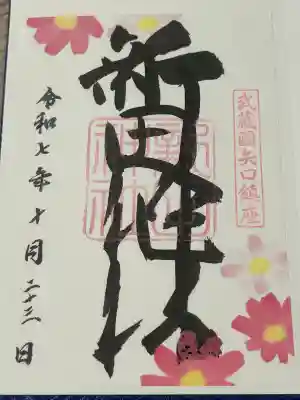 武蔵國矢口鎮座
新田神社
新田神社
令和七年十月二十三日